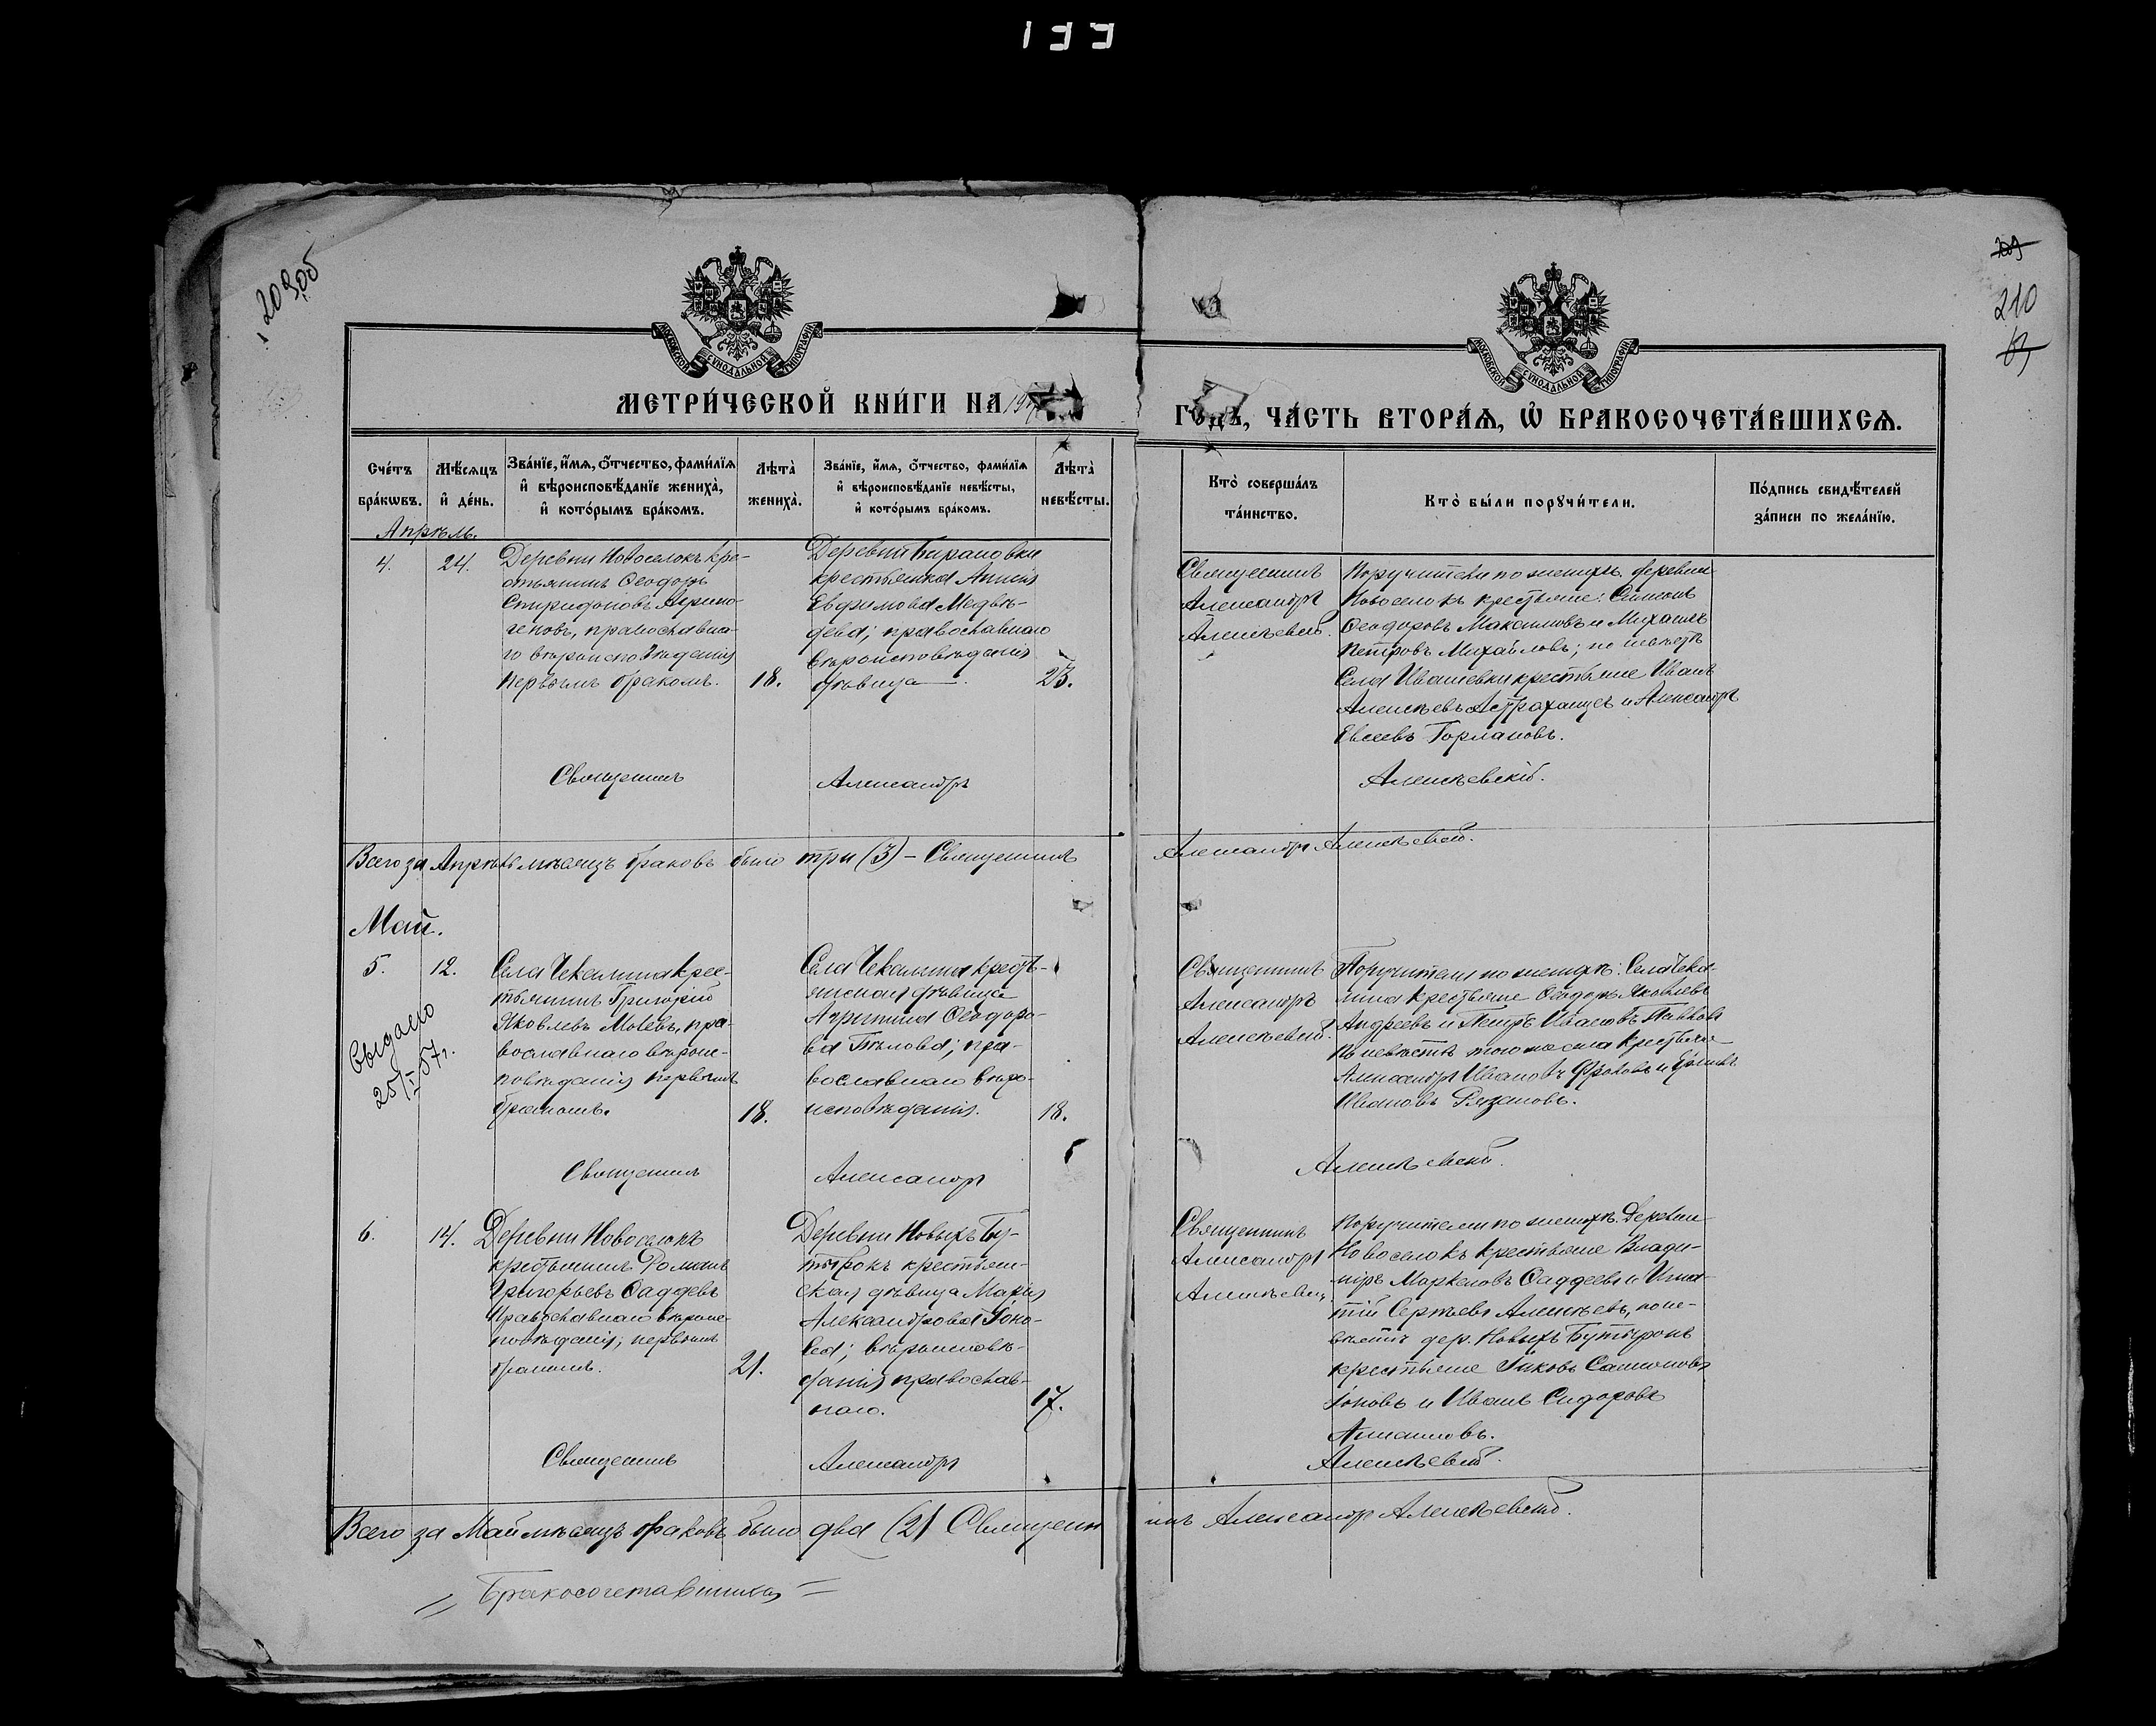 133
209об
209
210
МОСКОВСКОЙ СѴНОДАЛЬНОЙ ТИПОГРАФІИ
МОСКОВСКОЙ СѴНОДАЛЬНОЙ ТИПОГРАФІИ
МЕТРИ́ЧЕСКОЙ КНИ́ГИ НА 19
ГОДЪ, ЧА́СТЬ ВТОРА́Ѧ, Ѽ БРАКОСОЧЕТА́ВШИХСѦ.
Сче́тъ бра́кѡвъ.
Мѣ́сѧцъ и҆ де́нь.
Зва́нїе, и҆́мѧ, ѻ҆́тчество, фами́лїѧ и҆ вѣроисповѣ́данїе жениха̀, и҆ кото́рымъ бра́комъ.
Лѣта̀ жениха̀.
Зва́нїе, и҆́мѧ, ѻ҆́тчество, фами́лїѧ и҆ вѣроисповѣ́данїе невѣ́сты, и҆ кото́рымъ бра́комъ.
Лѣта̀ невѣ́сты.
Кто̀ соверша́лъ та́инство.
Кто̀ бы́ли порꙋчи́тели.
По́дпись свидѣ́телей за́писи по жела́нїю.
Апрѣль.
4.
24.
Деревни Новоселокъ кре-
стьянинъ Ѳеодоръ
Спиридоновъ
православна-
го вѣроисповѣданія
первымъ бракомъ.
18.
Деревни Барановки
крестьянка
Евфимова Медвѣ-
дева; православнаго
вѣроисповѣданія
дѣвица.
23.
Священникъ
Александръ
Алексѣевскій.
Поручители по женихѣ: деревни
Новоселокъ крестьяне: Симеонъ
Ѳеодоровъ Максимовъ и Михаилъ
Петровъ Михайловъ; по невѣстѣ
Села Ивашевки крестьяне Иванъ
Алексѣевъ Астраханцев и Александръ
Евсеевъ
Священникъ Александръ Алексѣевскій.
Всего за Апрѣль мѣсяцъ браковъ было три (3) – Священникъ Александръ Алексѣевскій.
Май.
5.
12.
Выдано
25/I 57г.
Села Чекалина крес-
тьянинъ Григорій
Яковлевъ пра-
вославнаго вѣроис-
повѣданія первымъ
бракомъ.
18.
Села Чекалина кресть-
янская дѣвица
Агрипина Ѳеодоро-
ва Бѣлова; пра-
вославнаго вѣро-
исповѣданія.
18.
Священникъ
Александръ
Алексѣевскій.
Поручители по женихѣ: Села Чека-
лина крестьяне Ѳеодоръ Яковлевъ
Андреевъ и Петръ Ивановъ
по невѣстѣ того же села крестьяне
Александръ Ивановъ Фроловъ и
Ивановъ Рязановъ.
Священникъ Александръ Алексѣевскій.
6.
14.
Деревни Новоселокъ
крестьянинъ Романъ
Григорьевъ Ѳаддеевъ
Православнаго вѣроис-
повѣданія; первымъ
бракомъ.
21.
Деревни Новыхъ Бу-
тырокъ крестьян-
ская дѣвица Марія
Александрова Іоно-
ва; вѣроисповѣ-
данія православ-
наго.
17.
Священникъ
Александръ
Алексѣевскій.
Поручители по женихѣ: Деревни
Новоселокъ крестьяне Влади-
міръ Маркеловъ Ѳаддеевъ и Игна-
тій Сергѣевъ Алексѣевъ, по не-
вѣстѣ дер. Новыхъ Бутырокъ
крестьяне Іаковъ Самсоновъ
Іоновъ и Иванъ Сидоровъ
Священникъ Александръ Алексѣевскій.
Всего за Май мѣсяцъ браковъ было два (2) Священникъ Александръ Алексѣевскій.
= Бракосочетавшихся =